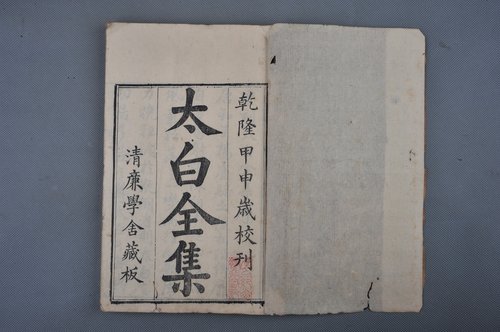 乾隆甲申歲校刊
太白全集
清廉學舍藏板